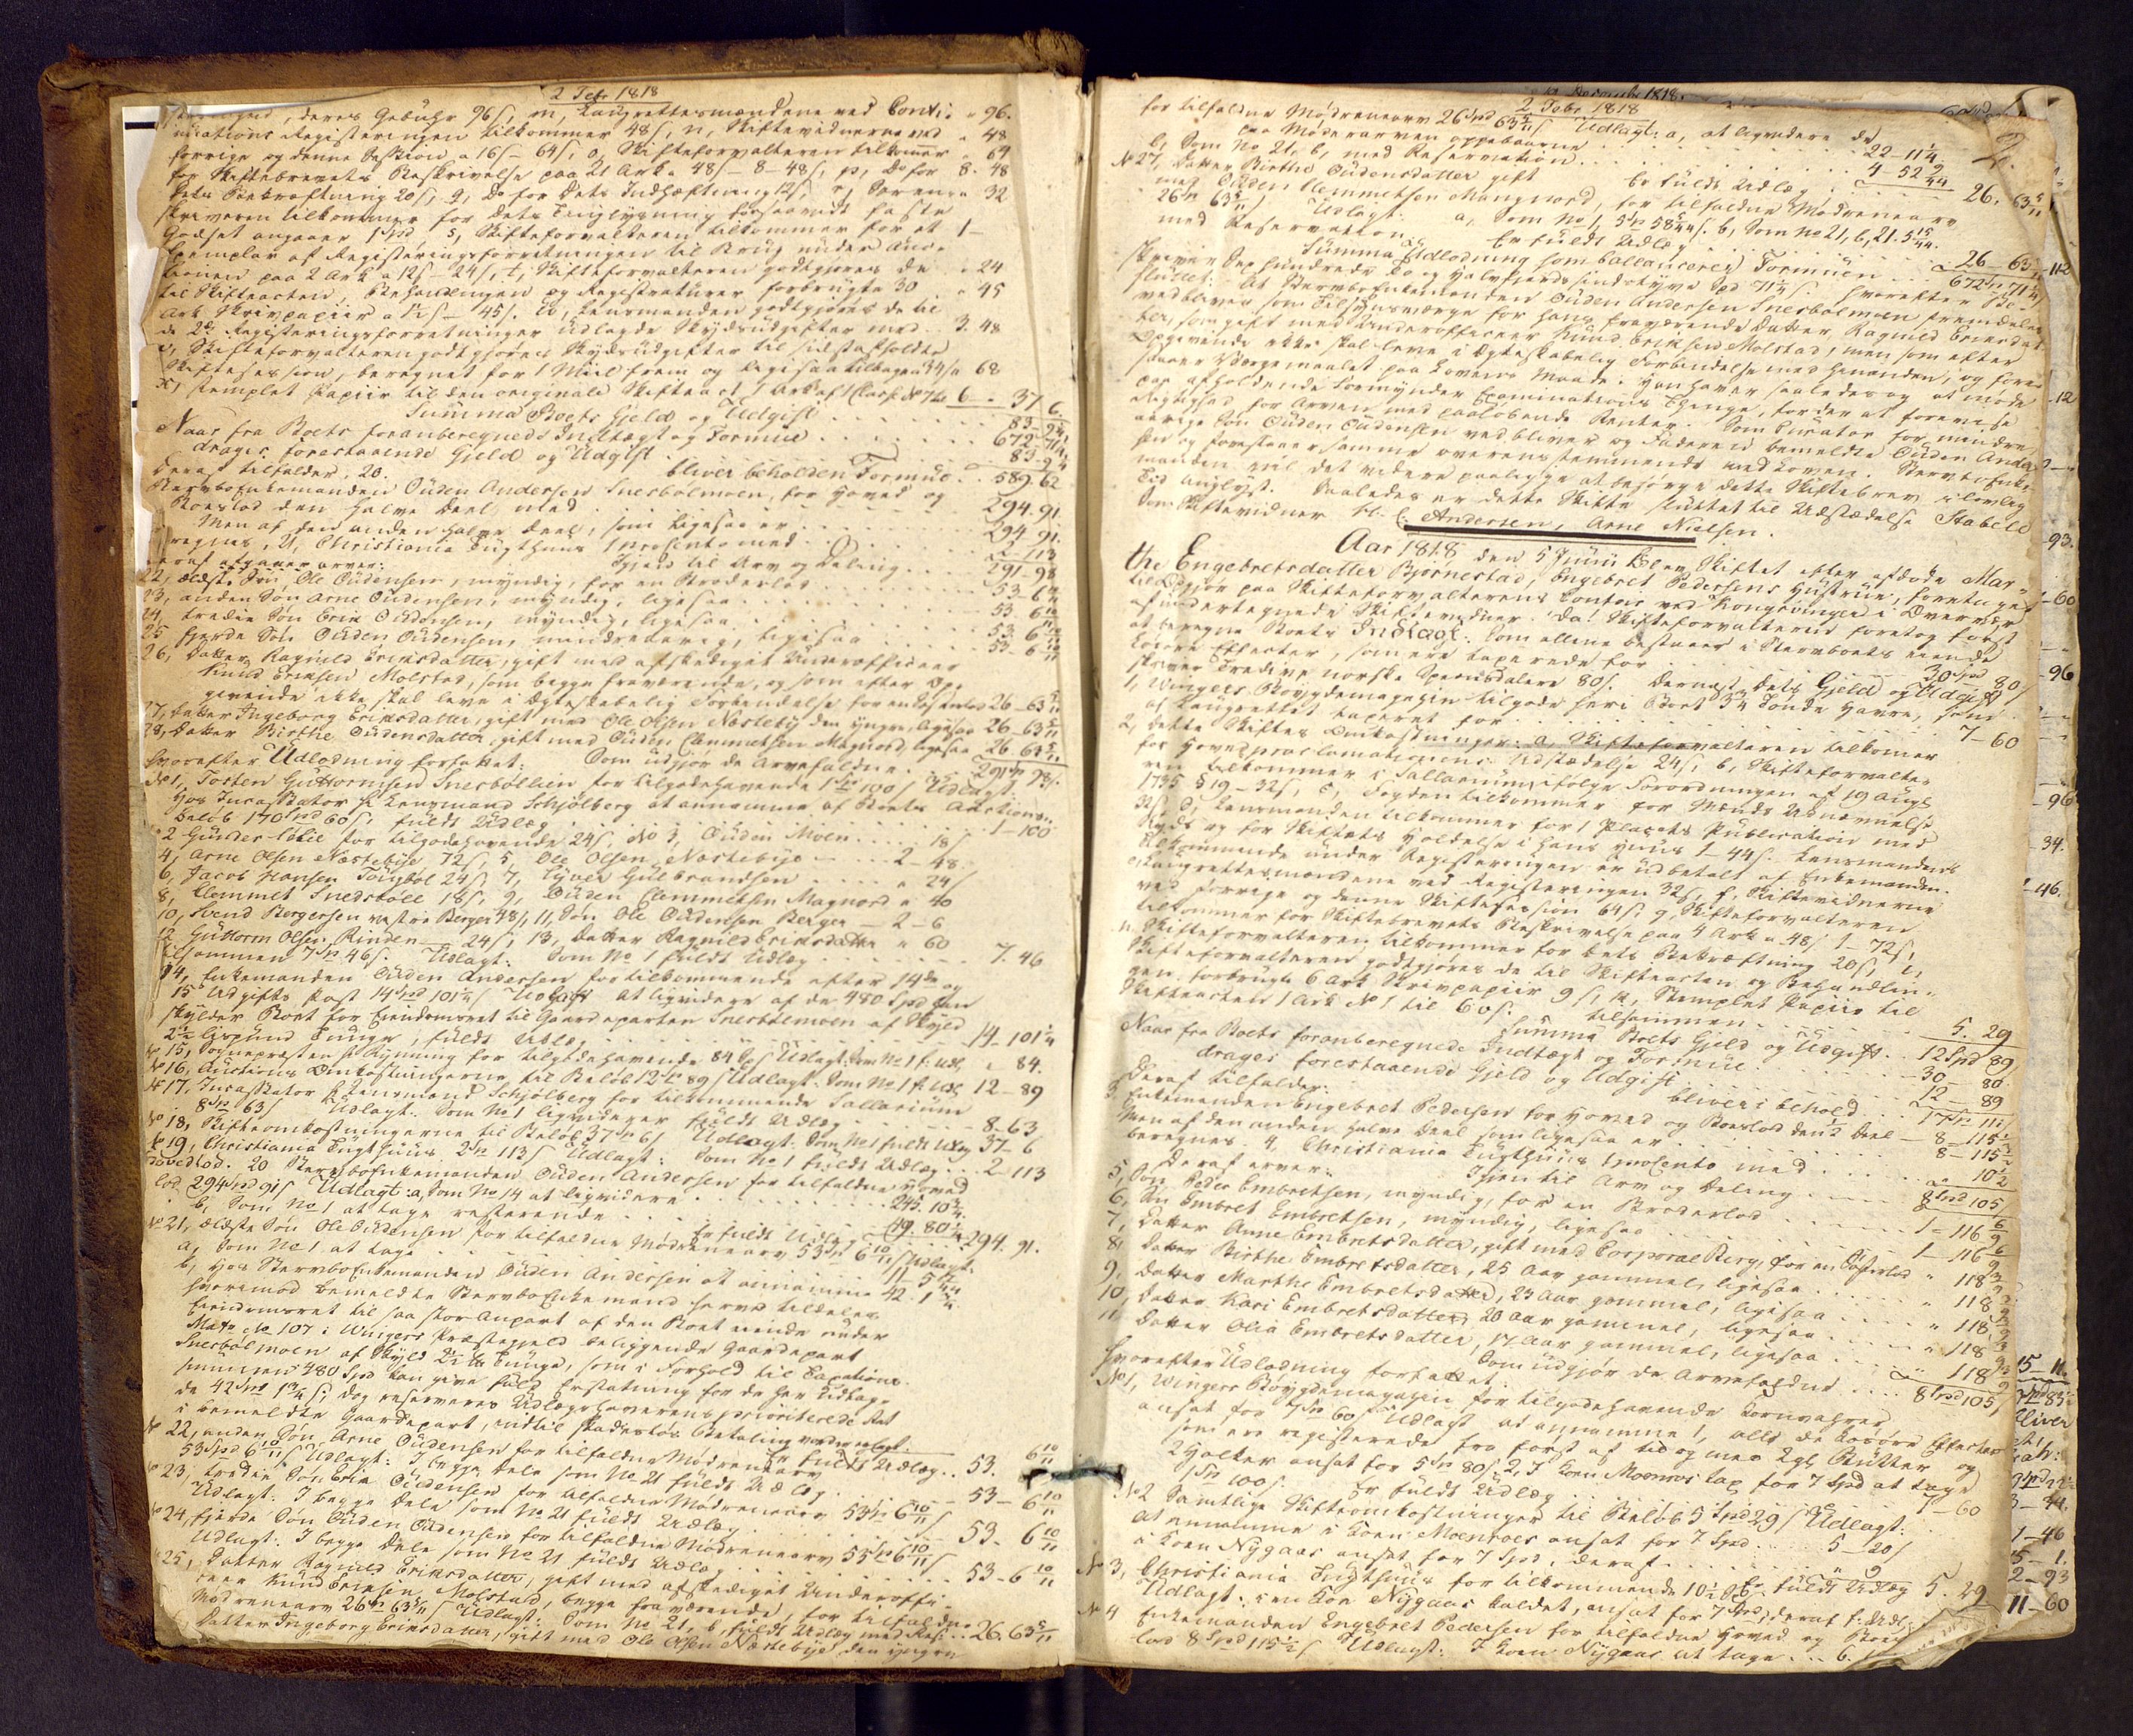 2 Febr 1818
deres Gebühr 96 s, m, Laugrettesmændene ved Conti- " 96.
nuations Registeringen tilkommer 48 s, n, Skiftevidnerne ved " 48
forrige og denne Session a 16 s – 64 s, o, Skifteforvalteren tilkommer " 64
for Skiftebrevets Beskrivelse paa 21 Ark a 48 s – 8 – 48 s, p, Do for 8. 48
dets Bekræftning 20 s, q, Do for dets Indhæftning 12 s, r, Soren- " 32
skriveren tilkommer for dets Tinglysning forsaavidt faste
Godset angaaer 1 Spd, s, Skifteforvalteren tilkommer for et 1 –
Exemplar af Registeringsforretningen til Brug under Auc-
tionen paa 2 Ark a 12 s – 24 s, t, Skifteforvalteren godtgjøres de " 24
til Skifteacten, Behandlingen og Registraturer forbrugte 30 " 45
Ark Skrivpapiir a 1½ s – 45 s. u, Lensmanden godtgjøres de til
de 2de Registeringsforretninger udlagde Skydsudgifter med 3. 48
v, Skifteforvalteren godtgjøres Skydsudgifter til sidstafholdte
Skiftesession, beregnet for 1 Miil frem og ligesaa tilbage " 68
x, stemplet Papiir til den originale Skifteact 1 Ark af 1 Class No 7 6 – 37 6.
Summa Boets Gjeld og Udgift 83 – 9¼
Naar fra Boets foranberegnede Indtægt og Formue 672 – 71¼
drages forestaaende Gjeld og Udgift 83 9¼
bliver beholden Formue 589. 62
Deraf tilfalder. 20.
Stervboenkemanden Ouden Andersen Snesbølmoen, for Hoved og
Boeslod den halve Deel med 294. 91.
Men af den anden halve Deel, som ligesaa er 294 91.
regnes, 21, Christiania Tugthuus 1 procento med 2 – 113
Igjen til Arv og Deling 291 – 98
Deraf arver:
22, ældste Søn Ole Oudensen, myndig, for en Broderlod 53 – 6 10/11
23, anden Søn Arne Oudensen, myndig, ligesaa 53 6 10/11
24, tredie Søn Erik Oudensen, myndig, ligesaa 53 6 10/11
25 fjerde Søn Ouden Oudensen, mindreaarig, ligesaa 53 – 6 10/11
26, Datter Ragnild Eriksdatter, gift med afskediget Underofficeer
Knud Eriksen Molstad, som begge fraværende, og som efter Op-
givende ikke skal leve i Ægteskabelig Forbindelse for en Søsterlod 26 – 63 5/11
27, Datter Ingeborg Eriksdatter, gift med Ole Olsen Næstebÿ den yngre, ligesaa 26 – 63 5/11
28, Datter Birthe Oudensdatter gift med Ouden Clemmetsen Magnord, ligesaa 26. 63 5/11
Som udgjør de Arvefaldne. 291 Spd 98 s.
Hvorefter Udlodning forfattet:
No 1, Torsten Guttormsen Snesbøllien for tilgodehavende 1 Spd 100 s Udlagt.
Hos Incassator Hr Lensmand Schjølberg at annamme af Boets Auctions-
beløb 170 Spd 60 s, fuldt Udlæg 1 – 100
2 Gunder Løbie for tilgodehavende 24 s, No 3, Ouden Moen 18 s
4, Arne Olsen Næstebÿe 72 s, 5, Ole Olsen Næstebÿe 2 – 48.
6, Jacob Hansen Tougbøl 24 s, 7, Syver Gulbrandsen " 24 s
8, Clemmet Snedsbøle 18 s, 9, Ouden Clemmetsen Magnord " 40
10, Svend Bergersen vestre Berger 48 s, 11, Søn Ole Oudensen Berger 2 – 6
12 Guttorm Olsen Rinden 24 s, 13, Datter Ragnild Eriksdatter " 60
tilsammen 7 Spd 46 s. Udlagt: Som No 1 fuldt Udlæg 7. 46
14, Enkemanden Ouden Andersen for tilkommende efter 14de og
15 Udgifts Post 14 Spd 101¼ s Udlagt At ligvidere af de 480 Spd han
skylder Boet for Eiendomsret til Gaardeparten Snesbølmoen af Skyld
2½ Lispund Tunge, fuldt Udlæg 14 – 101¼
No 15, Sognepræsten Hr Rynning for tilgodehavende 84 s Udlagt. Som No 1 f. Udl. " 84.
No 16, Auctions Omkostningerne til Beløb 12 Spd 89 s Udlagt. Som No 1 f. Udl. 12 – 89
No 17, Incassator Hr Lensmand Schjølberg for tilkommende Sallarium
8 Spd 63 s Udlagt: Som No 1 ligviderer fuldt Udlæg 8 – 63
No 18, Skifteomkostningerne til Beløb 37 Spd 6 s Udlagt. Som No 1 fuldt Udlæg 37 – 6
No 19, Christiania Tugthuus 2 Spd 113 s Udlagt: Som No 1 fuldt Udlæg 2 – 113
Hovedlod. 20 Stervboenkemanden Ouden Andersen for tilfaldne Hoved
lod 294 Spd 91 s Udlagt: a, Som No 14 at ligvidere 245. 10¼.
b, Som No 1 at tage resterende 49. 80¾
Er fuldt Udlæg 294. 91.
No 21, ældste Søn Ole Oudensen for tilfaldne Mødrenearv 53 Spd 6 10/11 s Udlagt:
a, Som No 1 at tage 11 – 5
b, Hos Stervboenkemanden Ouden Andersen at annamme 42. 1¾
hvorimod bemeldte Stervboenkemand herved tildeles
Eiendomsret til saa stor Anpart af den Boet eiende under
Matr No 107 i Wingers Præstegjeld beliggende Gaardepart
Snesbølmoen af Skyld 2½ Lb Tunge, som i Forhold til Taxations-
summen 480 Spd kan give fuld Erstatning for de her Udlag-
de 42 Spd 1¾ s, dog reserveres Udlægshaverens prioriterede Ret
i bemeldte Gaardepart, indtil skadesløs Betaling vorder erlagt.
Er fuldt Udlæg 53. 6 10/11
No 22, anden Søn Arne Oudensen for tilfaldne Mødrenearv
53 Spd 6 10/11 s Udlagt: I begge Dele som No 21 fuldt Udlæg 53 – 6 10/11
No 23, tredie Søn Erik Oudensen for tilfaldne Mødrenearv 53 Spd 6 10/11 s
Udlagt: I begge Dele som No 21 fuldt Udlæg 53. 6 10/11
No 24, fjerde Søn Ouden Oudensen for tilfaldne Mødrenearv 53 Spd 6 10/11 s
Udlagt: I begge Dele som No 21 fuldt Udlæg 53 – 6 10/11
No 25, Datter Ragnild Eriksdatter, gift med afskediget Underoffi-
ceer Knud Eriksen Molstad, begge fraværende, for tilfaldne
Mødrenearv 26 Spd 63 5/11 s Udlagt: Som No 21, b, fuldt Udlæg med Res. 26. 63 5/11
Datter Ingeborg Eriksdatter, gift med Ole Olsen Næstebÿe den yngre
December 1818.
2 Febr 1818
2.
for tilfaldne Mødrenearv 26 Spd 63 5/11 s Udlagt: a, at ligvidere de
paa Møderarven oppebaarne 22 – 11¼
b, Som No 21, b, med Reservation 4 52 9/44
Er fuldt Udlæg 26. 63 5/11
No 27, Datter Birthe Oudensdatter gift
med Ouden Clemmetsen Mangnord, for tilfaldne Mødrenearv
26 Spd 63 5/11 s Udlagt: a, Som No 1, 5 Spd 58 5/44 s. b, Som No 21, b, 21. 5 15/44.
med Reservation. Er fuldt Udlæg 26 – 63 5/11
Summa Udlodning som ballancerer Formuen 672 Spd 71¼
skriver Sex hundrede to og halvfjerdsindstyve Spd 71¼ s. Hvorefter Skiftet
sluttet: At Stervboenkemanden Ouden Andersen Snesbølmoen fremdeles
vedbliver som Tilsynsværge for hans fraværende Datter Ragnild Eriksdat-
ter, som gift med Underofficeer Knud Eriksen Molstad, men som efter
Opgivende ikke skal leve i Ægteskabelig Forbindelse med hinanden, og fore-
staaer Værgemaalet paa Lovens Maade. Han haver saaledes og at møde
paa afholdende Formynder Examinations Thinge, for der at forevise
Rigtighed for Arven med paaløbende Renter. Som Curator for mindre-
aarige Søn Ouden Oudensen vedbliver og Faderen bemeldte Ouden Ander-
sen og forestaaer samme overensstemmende med Loven. Stervboenke-
manden vil det videre paaligge at besørge dette Skiftebrev i lovlig
Tid tinglyst. Saaledes er dette Skifte sluttet til Udstædelse Stabell
Som Skiftevidner H. C. Andersen, Arne Nielsen.
Aar 1818 den 5 Junii blev Skiftet efter afdøde Mar-
the Engebretsdatter Bjørnestad, Engebret Pedersens Hustrue, foretaget
til Udgjør paa Skifteforvalterens Contoir ved Kongsvinger i Overvær
af undertegnede Skiftevidner. Da Skifteforvalteren foretog først
at beregne Boets Indtægt: Som allene bestaaer i Stervboets eiende
Løsøre Effecter, som ere taxerede for 30 Spd 80 s
skriver Tredive norske Speciesdalere 80 s. Dernæst dets Gjeld og Udgift
1, Wingers Bøygdemagazin tilgode heri Boet 3¾ Tønde Havre, som
af Laugrettet taxeret for 7 – 60
2, dette Skiftes Omkostninger: a, Skifteforvalteren tilkommer
for Hovedproclamationens Udstædelse 24 s, b, Skifteforvalte-
ren tilkommer i Sallarium, ifølge Forordningen af 19 Augt
1735 § 19 – 32 s, c, Fogden tilkommer for Mænds Udnævnelse
32 s, d, Lensmanden tilkommer for 1 Placats Publication med
Skyds og for Skiftets Holdelse i hans Huus 1 – 44 s. Lensmandens
tilkommende under Registeringen er udbetalt af Enkemanden.
e, Laugrettesmændene ved Registeringen 32 s, f, Skiftevidnerne
ved forrige og denne Skiftesession 64 s, g, Skifteforvalteren
tilkommer for Skiftebrevets Beskrivelse paa 4 Ark a 48 s 1 – 72 s,
h, Skifteforvalteren tilkommer for dets Bekræftning 20 s, i,
Skifteforvalteren godtgjøres de til Skifteacten og Behandlin-
gen forbrugte 6 Ark Skrivpapiir 9 s, k, Stemplet Papiir til
Skifteacten 1 Ark No 1 til 60 s. tilsammen 5. 29
Summa Boets Gjeld og Udgift 12 Spd 89
Naar fra Boets foranberegnede Indtægt og Formue 30 – 80.
drages forestaaende Gjeld og Udgift 12 – 89
bliver i behold 17 Spd 111 s
Deraf tilfalder:
3, Enkemanden Engebret Pedersen for Hoved og Boeslod den ½ Deel 8 – 115½
Men af den anden halve Deel som ligesaa er 8 – 115½
beregnes. 4, Christiania Tugthuus 1 procento med 10½
Igjen til Arv og Deling 8 Spd 105 s
Deraf arver:
5, Søn Peder Embretsen, myndig, for en Broderlod 1 – 116 6/9
6, Søn Embret Embretsen, myndig, ligesaa 1 – 116 6/9
7, Datter Anne Embretsdatter, gift med Corporal Berg, for en Søsterlod " 118 3/9
8, Datter Birthe Embretsdatter, 25 Aar gammel, ligesaa " 118 3/9
9, Datter Marthe Embretsdatter, 23 Aar gammel, ligesaa " 118 3/9
10, Datter Kari Embretsdatter, 20 Aar gammel, ligesaa " 118 3/9
11, Datter Olia Embretsdatter, 17 Aar gammel, ligesaa " 118 3/9
Som udgjør de Arvefaldne 8 Spd 105 s
Hvorefter Udlodning forfattet:
No 1, Wingers Bøygdemagazin for tilgodehavende Kornvahrer
ansat for 7 Spd 60 s Udlagt at annamme 1, alle de Løsøre Effecter
som ere registerede fra først af til og med og
2 Hølker ansat for 5 Spd 80 s, 2, I Koen Moenros tax for 7 Spd at tage
1 Spd 100 s. Er fuldt Udlæg 7 – 60
No 2 Samtlige Skifteomkostninger til Beløb 5 Spd 29 s Udlagt:
At annamme i Koen Moenroes ansat for 7 Spd 5 – 20 s
i Koen Nygaas ansat for 7 Spd, deraf " 9
Er fuldt Udlæg 5. 29
No 3, Christiania Tugthuus for tilkommende 10½ s
Udlagt: i en Koe Nygaas kaldet, ansat for 7 Spd, deraf f. Udl.
No 4 Enkemanden Engebret Pedersen for tilfaldne Hoved og Boes
lod 8 Spd 115½ s Udlagt: I Koen Nygaas at tage 6.